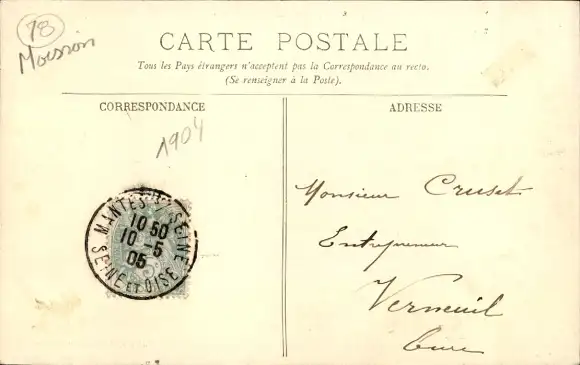 78
Moisson
CARTE POSTALE
Tous les Pays étrangers n'acceptent pas la Correspondance au recto.
(Se renseigner à la Poste).
CORRESPONDANCE
ADRESSE
1904
MANTES S/ SEINE
10 50
10-5
05
SEINE ET OISE
Monsieur Cruset
Entrepreneur
Verneuil
Eure